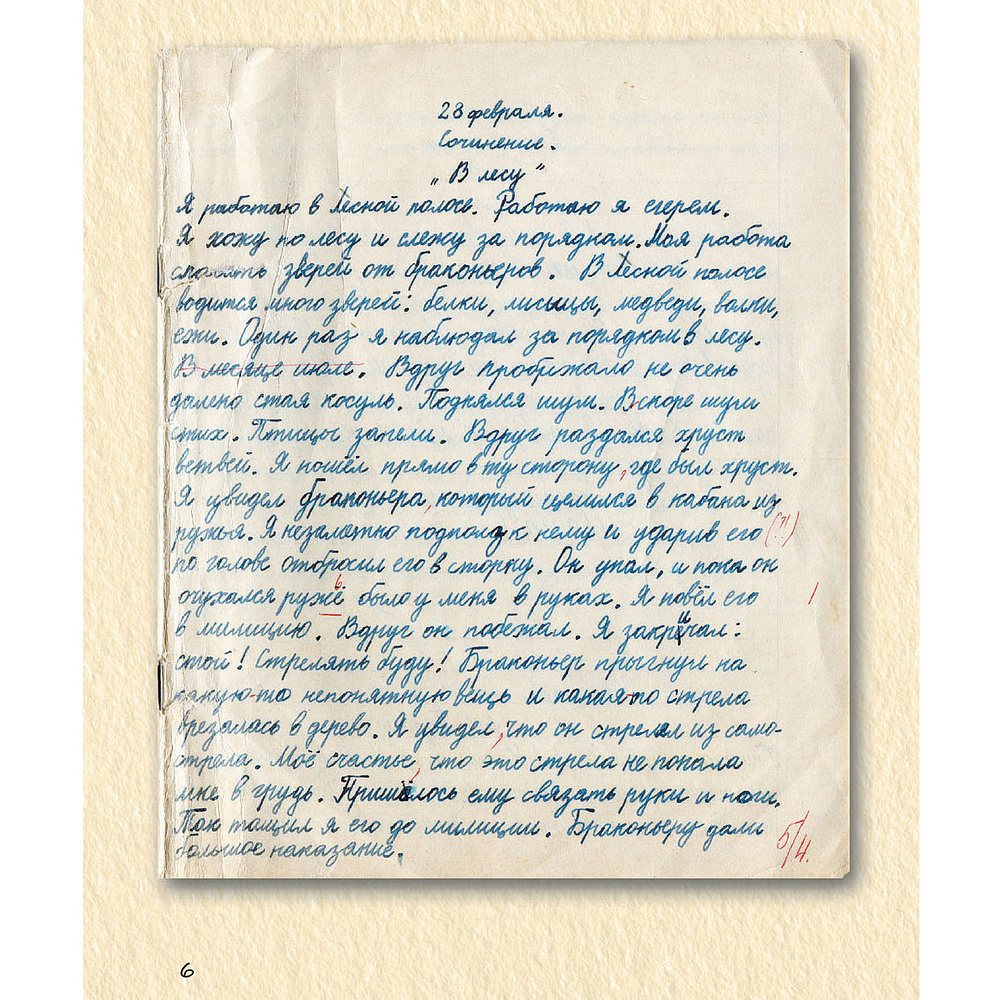 28 февраля.
Сочинение.
„В лесу"
Я работаю в Лесной полосе. Работаю я егерем.
Я хожу по лесу и слежу за порядком. Моя работа
спасать зверей от браконьеров. В Лесной полосе
водится много зверей: белки, лисицы, медведи, волки,
ежи. Один раз я наблюдал за порядком в лесу.
В месяце июле. Вдруг пробежало не очень
далеко стая косуль. Поднялся шум. Вскоре шум
стих. Птицы запели. Вдруг раздался хруст
ветвей. Я пошёл прямо в ту сторону, где был хруст.
Я увидел браконьера, который целился в кабана из
ружья. Я незаметно подполз к нему и ударив его
по голове отбросил его в сторку. Он упал, и пока он
очухался ружьё было у меня в руках. Я повёл его
в милицию. Вдруг он побежал. Я закричал:
стой! Стрелять буду! Браконьер прыгнул на
какую-то непонятную вещь и какая-то стрела
врезалась в дерево. Я увидел, что он стрелял из само-
стрела. Моё счастье, что это стрела не попала
мне в грудь. Пришлось ему связать руки и ноги.
Так тащил я его до милиции. Браконьеру дали
большое наказание.
5/4.
6